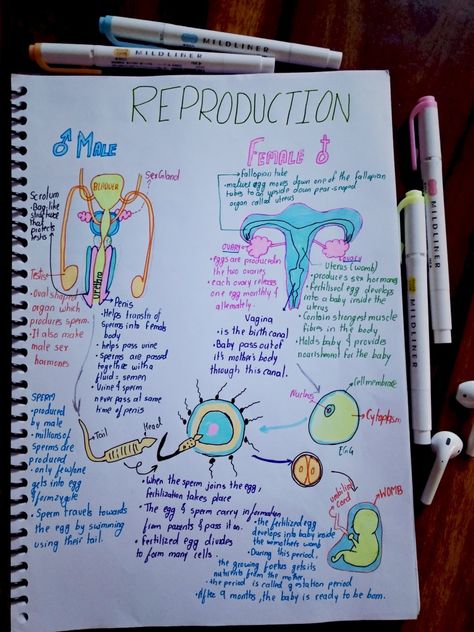 MILDLINER
MILDLINER
MILDLINER
MILDLINER
REPRODUCTION
♂ MALE
BLADDER
Sex Gland
?
Scrotum
• Bag-like
structure
that
protects
testis
Testis
• Oval shaped
organ which
produces sperm.
• It also make
male sex
hormones
Urethra
• Penis
• Helps transfer of
sperms into female
body
• helps pass urine
• Sperms are passed
together with a
fluid = semen
• Urine & sperm
never pass at same
time of penis
FEMALE ♀
• Fallopian tube
- matured egg moves down one of the fallopian
tubes to an upside down pear-shaped
organ called uterus
OVARY
OVARY
• eggs are produced in
the two ovaries.
• each ovary releases
one egg monthly &
alternately.
Uterus (womb)
• produces sex hormones
• Fertilised egg develops
into a baby inside the
uterus
• Contains strongest muscle
fibres in the body
• Holds baby & provides
nourishment for the baby
Vagina
- is the birth canal
• Baby pass out of
it's mother's body
through this canal.
Nucleus
Cell membrane
Cytoplasm
EGG
SPERM
• produced
by male
• millions of
sperms are
produced
• only few/one
gets into egg
& form zygote
• Sperm travels towards
the egg by swimming
using their tail.
Tail
Head
• When the sperm joins the egg,
fertilization takes place
• The egg & sperm carry information
from parents & pass it on.
• Fertilized egg divides
to form many cells.
umbilical
cord
WOMB
• the fertilized egg
develops into baby inside
the womothers womb
• During this period.
the growing foetus gets its
nutrients from the mother.
• the period is called gestation period
• After 9 months, the baby is ready to be born.